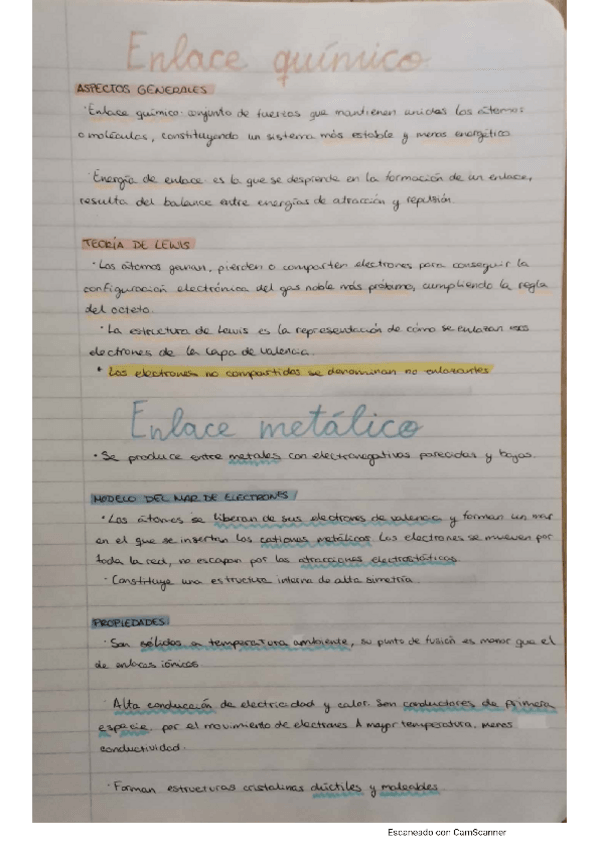 Enlace químico
ASPECTOS GENERALES
· Enlace químico: conjunto de fuerzas que mantienen unidas los átomos
o moléculas, constituyendo un sistema más estable y menos energético
· Energía de enlace: es la que se desprende en la formación de un enlace,
resulta del balance entre energías de atracción y repulsión.
TEORÍA DE LEWIS
· Los átomos ganan, pierden o comparten electrones para conseguir la
configuración electrónica del gas noble más próximo, cumpliendo la regla
del octeto.
· La estructura de Lewis es la representación de cómo se enlazan
electrones de la capa de valencia.
· Los electrones no compartidos se denominan no enlazantes
Enlace metálico
· Se produce entre metales con electronegativas parecidas y bajas.
MODELO DEL MAR DE ELECTRONES
· Los átomos se liberan de sus electrones de valencia y forman un mar
en el que se insertan los cationes metálicos. Los electrones se mueven por
toda la red, no escapan por las atracciones electrostáticas.
· Constituye una estructura interna de alta simetría.
PROPIEDADES
· Son sólidos a temperatura ambiente, su punto de fusión es menor que el
de enlaces iónicos
· Alta conducción de electricidad y calor. Son conductores de primera
especie, por el movimiento de electrones. A mayor temperatura, menos
conductividad.
· Forman estructuras cristalinas dúctiles y maleables
Escaneado con CamScanner